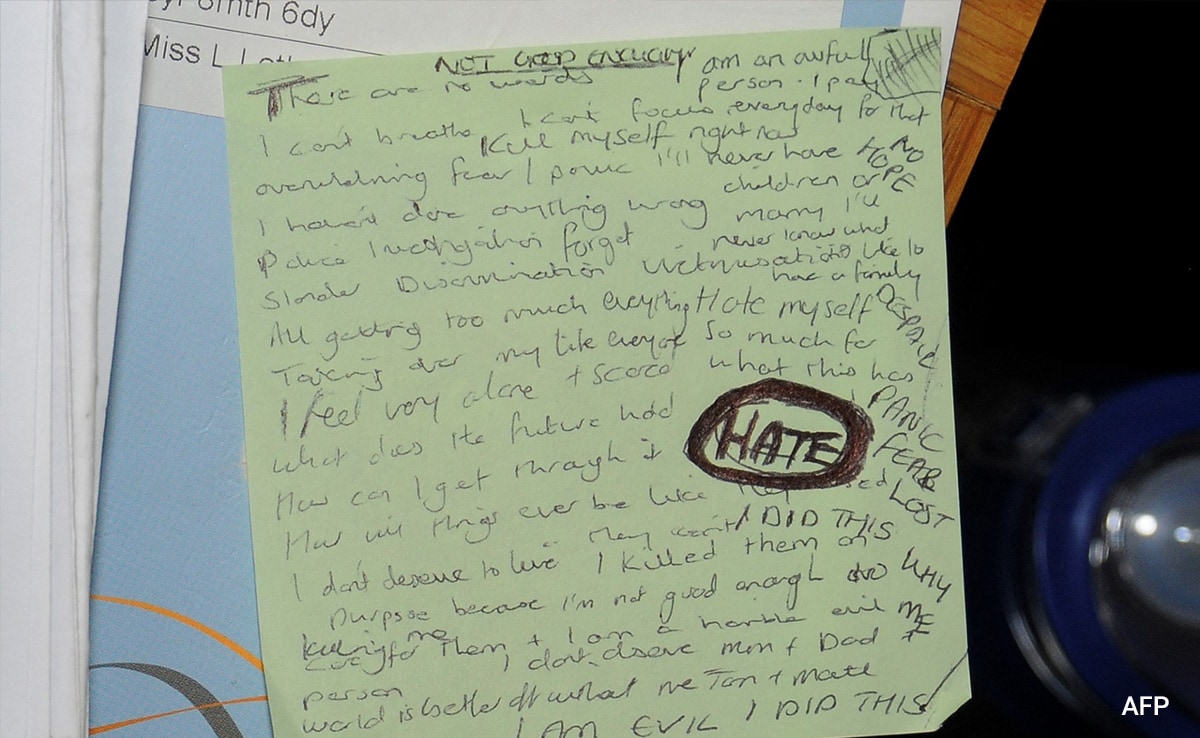 6dy
Miss L
NOT GOOD ENOUGH
There are no words
I am an awful
person - I pay
everyday for that
I can't breathe I can't focus
Kill myself right now
overwhelming fear / panic I'll never have
NO
HOPE
children or
I haven't done anything wrong marry I'll
never know what
Police Investigation forget
Slander Discrimination Victimisation its like to
have a family
All getting too much everything Hate myself
DESPAIR
Taking over my life everyone so much for
I feel very alone + scared what this has
What does the future hold
HATE
PANIC
FEAR
LOST
How can I get through it
How will things ever be like they used
I DID THIS
I don't deserve to live I killed them on
purpose because I'm not good enough
WHY
ME
to care for them + I am a horrible evil
person I don't deserve mum + Dad +
killing me
world is better off without me Tom + Matt
I AM EVIL I DID THIS
AFP